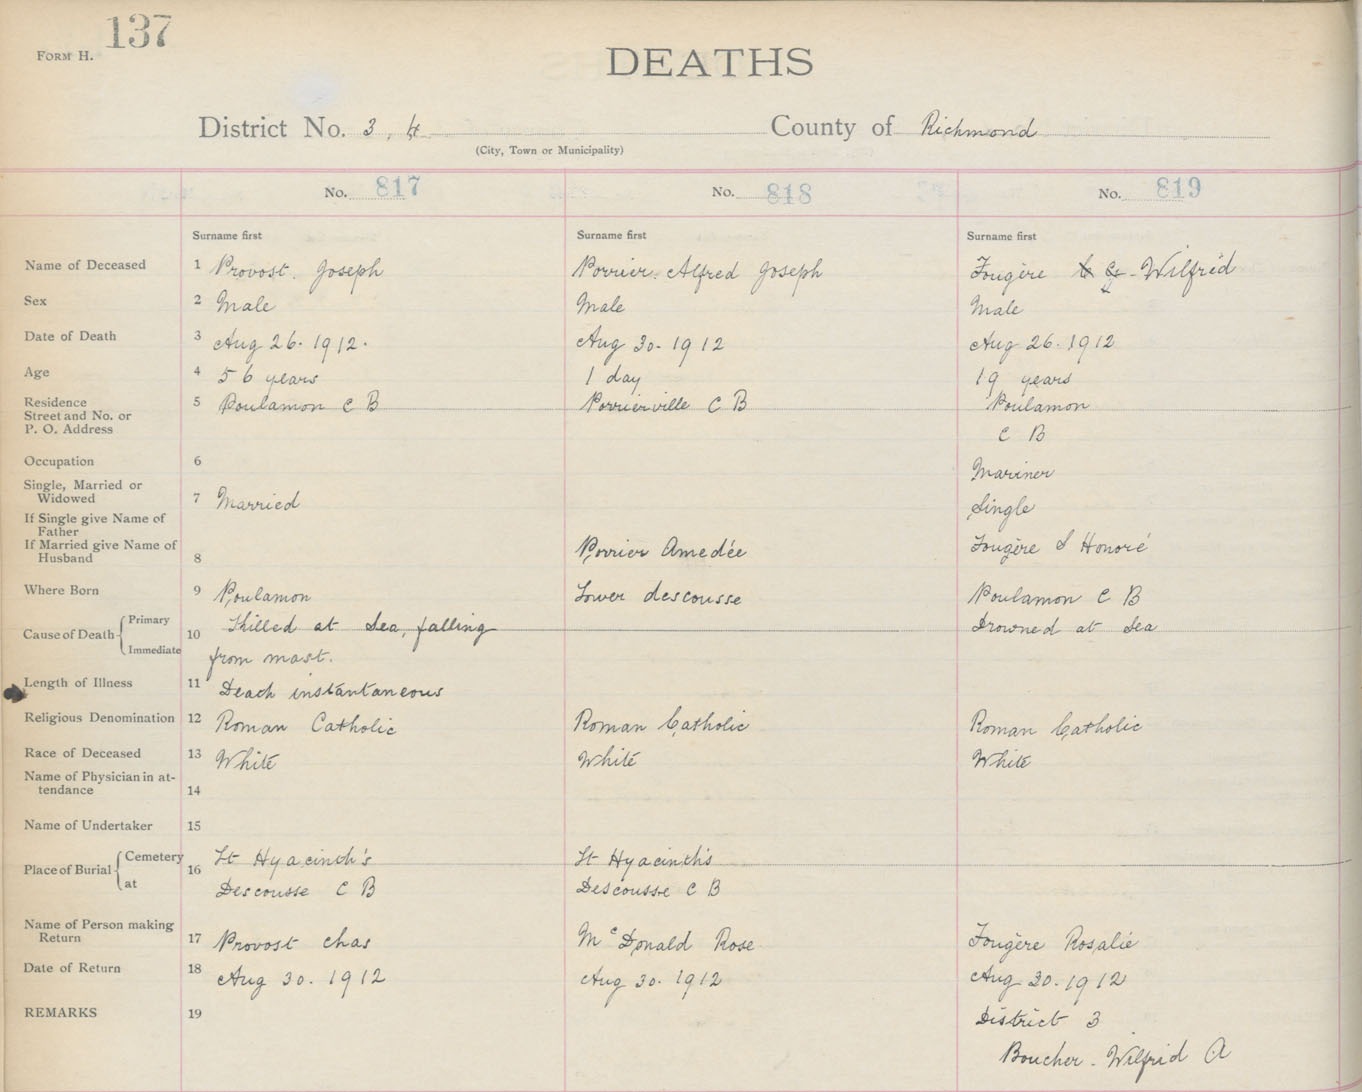 137
FORM H.
DEATHS
District No. 3, 4 County of Richmond
(City, Town or Municipality)
No. 817 No. 818 No. 819
Surname first Surname first Surname first
Name of Deceased 1 Provost. Joseph Poirrier. Alfred Joseph Fougère - Wilfrid
Sex 2 Male Male Male
Date of Death 3 Aug 26. 1912. Aug 30. 1912 Aug 26. 1912
Age 4 56 years 1 day 19 years
Residence
Street and No. or
P. O. Address
5 Poulamon C B Poirrierville C B Poulamon
C B
Occupation 6 Mariner
Single, Married or
Widowed
7 Married Single
If Single give Name of
Father
If Married give Name of
Husband
8 Poirrier Amedée Fougère Honoré
Where Born 9 Poulamon Lower descousse Poulamon C B
Cause of Death Primary
Immediate
10 Killed at Sea, falling Drowned at Sea
from mast.
Length of Illness 11 Death instantaneous
Religious Denomination 12 Roman Catholic Roman Catholic Roman Catholic
Race of Deceased 13 White White White
Name of Physician in at-
tendance
14
Name of Undertaker 15
Place of Burial Cemetery
at
16 St Hyacinth's St Hyacinth's
Descousse C B Descousse C B
Name of Person making
Return
17 Provost Chas McDonald Rose Fougère Rosalie
Date of Return 18 Aug 30. 1912 Aug 30. 1912 Aug 30. 1912
REMARKS 19 District 3
Boucher. Wilfrid A